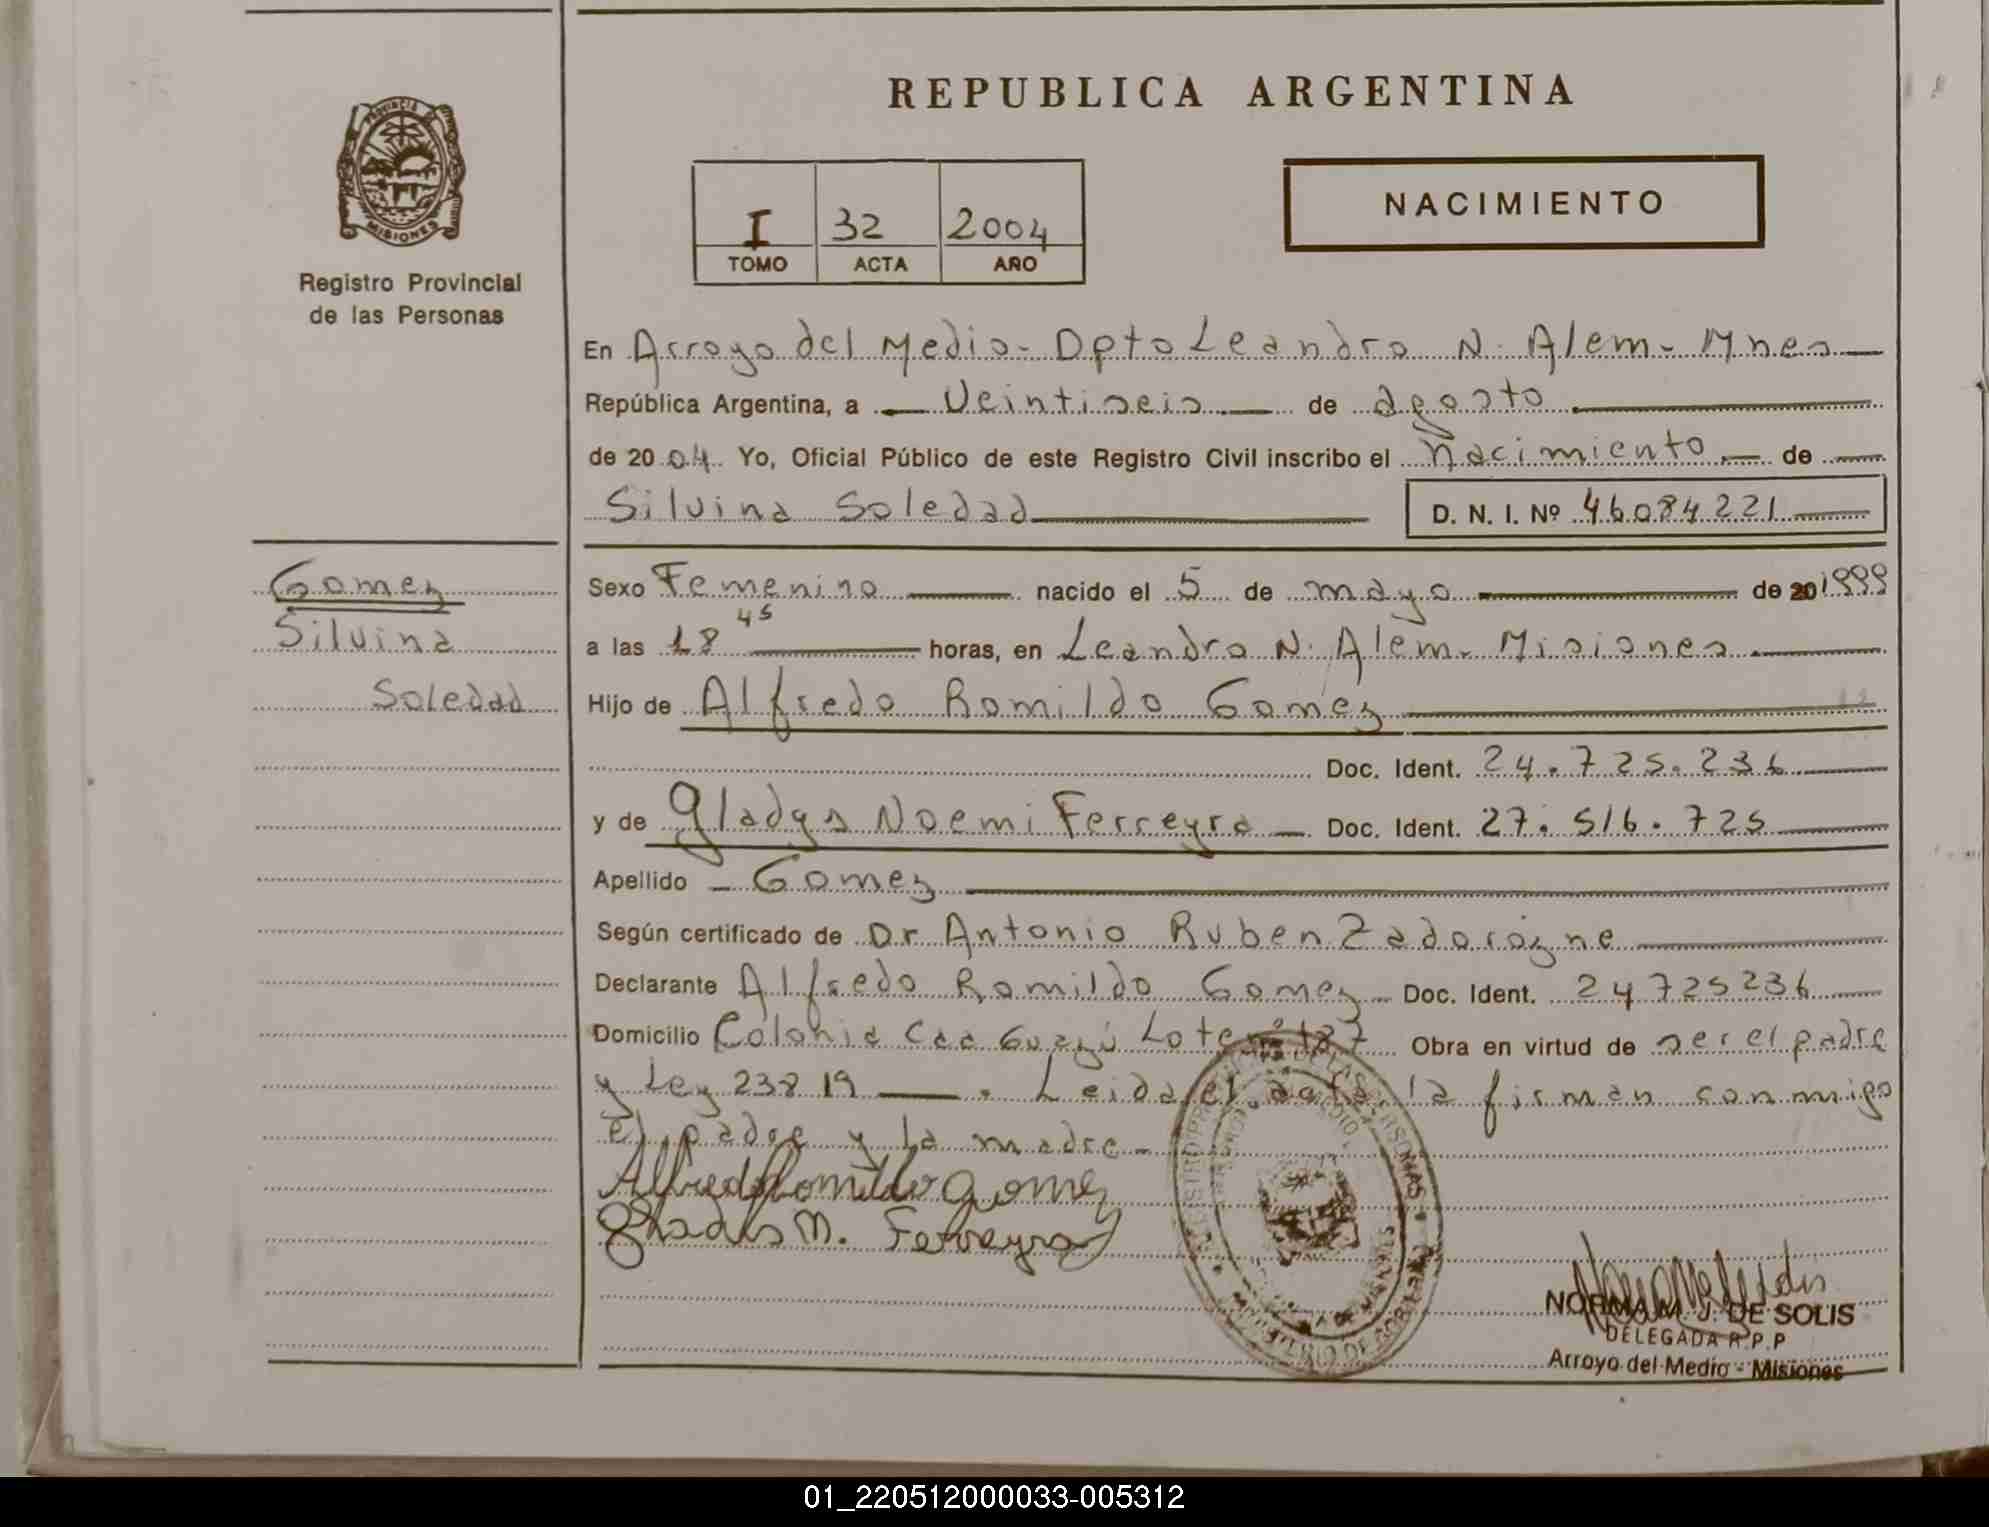 REPUBLICA ARGENTINA
PROVINCIA DE
MISIONES
Registro Provincial
de las Personas
I 32 2004
TOMO ACTA AÑO
NACIMIENTO
En Arroyo del Medio - Dpto Leandro N. Alem - Mnes
República Argentina, a Veintiseis de agosto
de 2004 Yo, Oficial Público de este Registro Civil inscribo el nacimiento de
Silvina Soledad D. N. I. Nº 46084221
Gomez
Silvina
Soledad
Sexo Femenino nacido el 5 de mayo de 20 1999
a las 18 45 horas, en Leandro N. Alem - Misiones
Hijo de Alfredo Romildo Gomez
Doc. Ident. 24.725.236
y de Gladys Noemi Ferreyra Doc. Ident. 27.516.725
Apellido Gomez
Según certificado de Dr Antonio Ruben Zadorozne
Declarante Alfredo Romildo Gomez Doc. Ident. 24725236
Domicilio Colonia Caa Guazú Lote nº 187 Obra en virtud de ser el padre
y Ley 23819. Leida el acta la firman conmigo
el padre y la madre
Alfredo Romildo Gomez
Gladis N. Ferreyra
NORMA M. J. DE SOLIS
DELEGADA R.P.P
Arroyo del Medio - Misiones
01_220512000033-005312